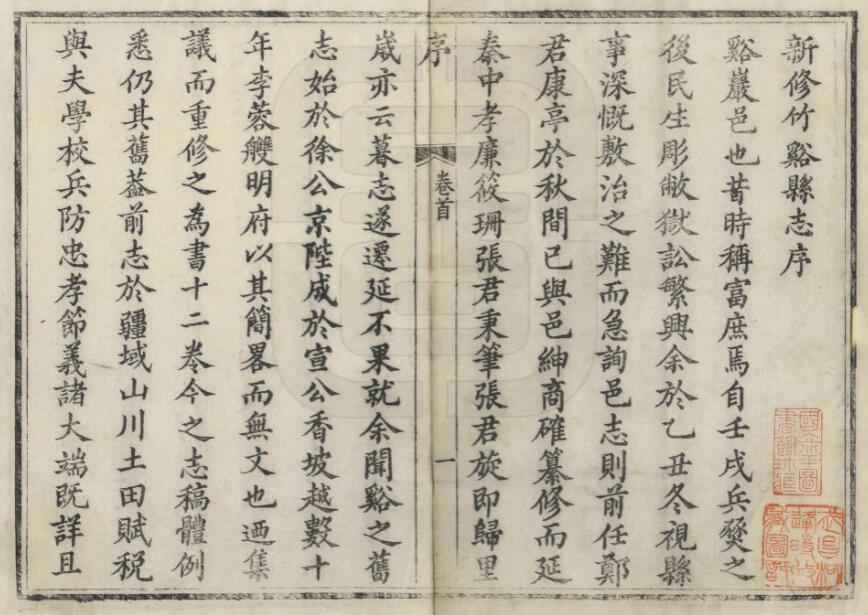 新修竹谿縣志序
谿巖邑也昔時稱富庶焉自壬戌兵燹之
後民生彫敝獄訟繁興余於乙丑冬視縣
事深慨敷治之難而急詢邑志則前任鄭
君康亭於秋間已與邑紳商確纂修而延
秦中孝廉筱珊張君秉筆張君旋即歸里
序
卷首
一
嵗亦云暮志遂遷延不果就余聞谿之舊
志始於徐公京陛成於宣公香坡越數十
年李蓉艭明府以其簡畧而無文也迺集
議而重修之為書十二卷今之志稿體例
悉仍其舊葢前志於疆域山川土田賦税
與夫學校兵防忠孝節義諸大端既詳且